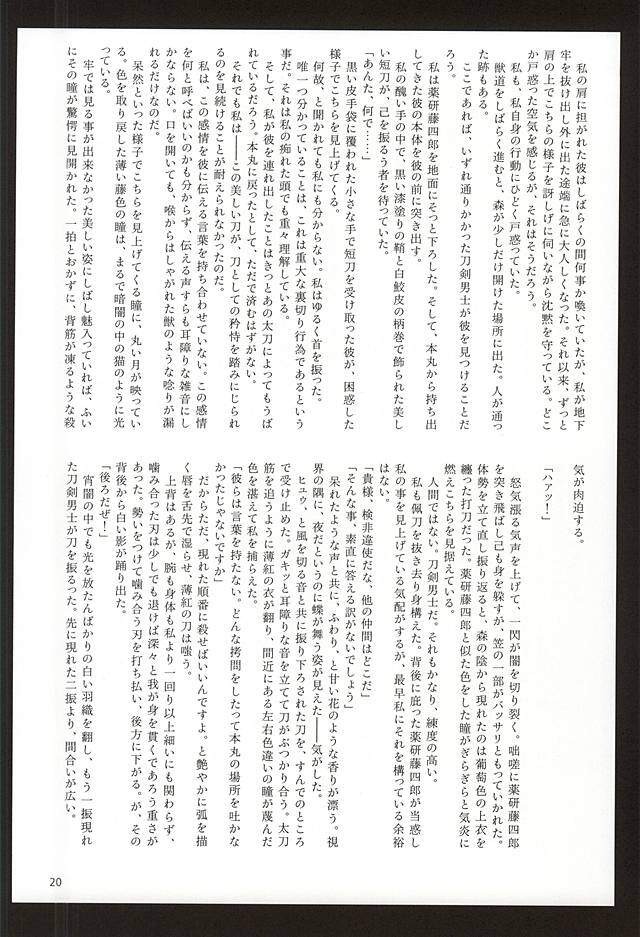 私の肩に担がれた彼はしばらくの間何事か喚いていたが、私が地下
牢を抜け出し外に出た途端に急に大人しくなった。それ以来、ずっと
肩の上でこちらの様子を訝しげに伺いながら沈黙を守っている。どこ
か戸惑った空気を感じるが、それはそうだろう。
　私も、私自身の行動にひどく戸惑っていた。
　獣道をしばらく進むと、森が少しだけ開けた場所に出た。人が通っ
た跡もある。
　ここであれば、いずれ通りかかった刀剣男士が彼を見つけることだ
ろう。
　私は薬研藤四郎を地面にそっと下ろした。そして、本丸から持ち出
してきた彼の本体を彼の前に突き出す。
　私の醜い手の中で、黒い漆塗りの鞘と白鮫皮の柄巻で飾られた美し
い短刀が、己を振るう者を待っていた。
「あんた、何で……」
　黒い皮手袋に覆われた小さな手で短刀を受け取った彼が、困惑した
様子でこちらを見上げてくる。
　何故、と聞かれても私にも分からない。私はゆるく首を振った。
　唯一つ分かっていることは、これは重大な裏切り行為であるという
事だ。それは私の痴れた頭でも重々理解している。
　そして、私が彼を連れ出したことはきっとあの太刀によってもうば
れているだろう。本丸に戻ったとして、ただで済むはずがない。
　それでも私は――この美しい刀が、刀としての矜恃を踏みにじられ
るのを見続けることが耐えられなかったのだ。
　私は、この感情を彼に伝える言葉を持ち合わせていない。この感情
を何と呼べばいいのかも分からず、伝える声すらも耳障りな雑音にし
かならない。口を開いても、喉からはしゃがれた獣のような唸りが漏
れるだけなのだ。
　呆然といった様子でこちらを見上げてくる瞳に、丸い月が映ってい
る。色を取り戻した薄い藤色の瞳は、まるで暗闇の中の猫のように光
っている。
　牢では見る事が出来なかった美しい姿にしばし魅入っていれば、ふい
にその瞳が驚愕に見開かれた。一拍とおかずに、背筋が凍るような殺
気が肉迫する。
「ハァッ！」
　怒気漲る気声を上げて、一閃が闇を切り裂く。咄嗟に薬研藤四郎
を突き飛ばし己も身を躱すが、笠の一部がバッサリともっていかれた。
体勢を立て直し振り返ると、森の陰から現れたのは葡萄色の上衣を
纏った打刀だった。薬研藤四郎と似た色をした瞳がぎらぎらと気炎に
燃えこちらを見据えている。
　人間ではない。刀剣男士だ。それもかなり、練度の高い。
　私も佩刀を抜き去り身構えた。背後に庇った薬研藤四郎が当惑し
私の事を見上げている気配がするが、最早私にそれを構っている余裕
はない。
「貴様、検非違使だな、他の仲間はどこだ」
「そんな事、素直に答える訳がないでしょう」
　呆れたような声と共に、ふわり、と甘い花のような香りが漂う。視
界の隅に、夜だというのに蝶が舞う姿が見えた――気がした。
　ヒュウ、と風を切る音と共に振り下ろされた刀を、すんでのところ
で受け止めた。ガキッと耳障りな音を立てて刀がぶつかり合う。太刀
筋を追うように薄紅の衣が翻り、間近にある左右色違いの瞳が蔑んだ
色を湛えて私を捕らえた。
「彼らは言葉を持たない。どんな拷問をしたって本丸の場所を吐かな
かったじゃないですか」
　だからただ、現れた順番に殺せばいいんですよ。と艶やかに弧を描
く唇を舌先で湿らせ、薄紅の刀は嗤う。
　上背はあるが、腕も身体も私より一回り以上細いにも関わらず、
噛み合った刃は少しでも退けば深々と我が身を貫くであろう重さが
あった。勢いをつけて噛み合う刃を打ち払い、後方に下がる。が、その
背後から白い影が踊り出た。
「後ろだぜ！」
　宵闇の中でも光を放たんばかりの白い羽織を翻し、もう一振現れ
た刀剣男士が刀を振るった。先に現れた二振より、間合いが広い。
20